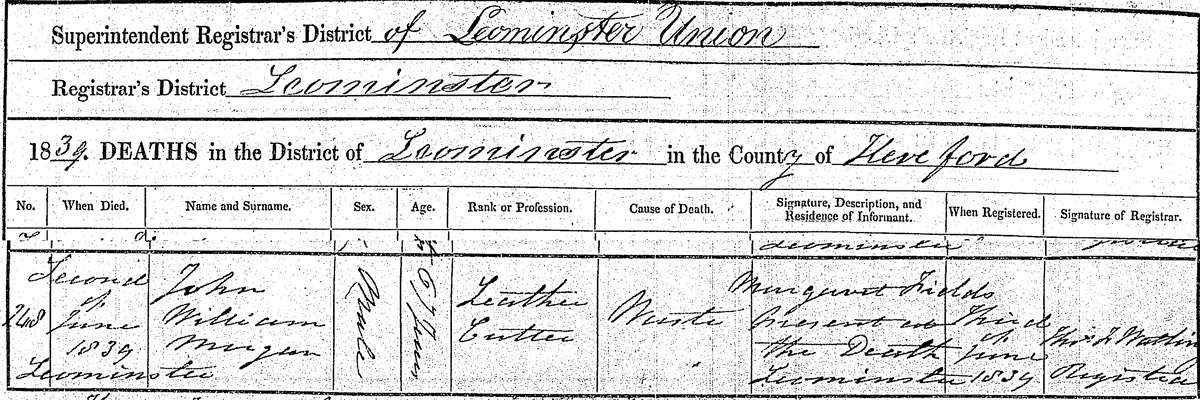 Superintendent Registrar's District of Leominster Union
Registrar's District Leominster
1839. DEATHS in the District of Leominster in the County of Hereford
No. When Died. Name and Surname. Sex. Age. Rank or Profession. Cause of Death. Signature, Description, and Residence of Informant. When Registered. Signature of Registrar.
Leominster
Second of June 1839 Leominster
John William Morgan
Male
67 Years
Leather Cutter
Waste
Margaret Fields
Present at
the Death
Leominster
Third of June 1839
Registrar